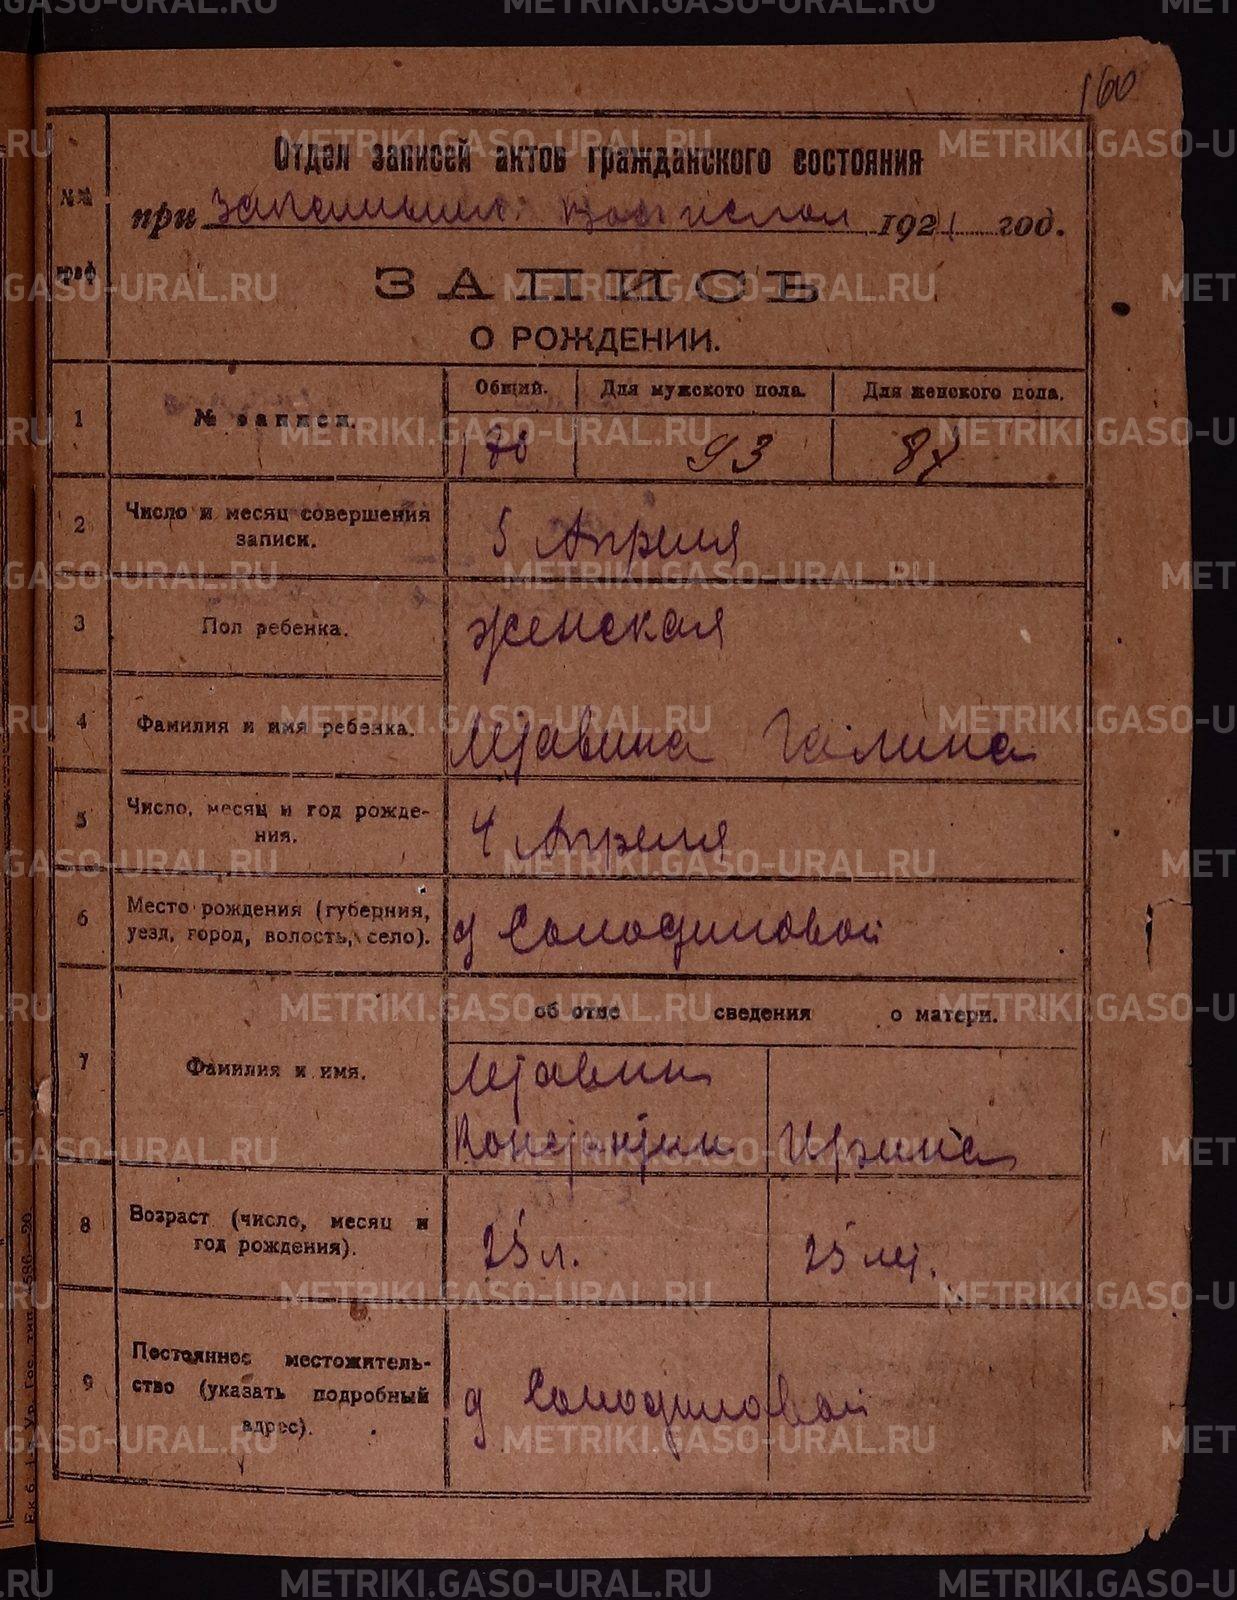 160
Отдел записей актов гражданского состояния
при волисполк 1921 год.
№№ граф
ЗАПИСЬ
О РОЖДЕНИИ.
1 № записи. Общий. Для мужского пола. Для женского пола.
180 93 87
2 Число и месяц совершения записи. 5 Апреля
3 Пол ребенка. женская
4 Фамилия и имя ребенка. Галина
5 Число, месяц и год рожде-
ния. 4 Апреля
6 Место рождения (губерния,
уезд, город, волость, село). д Солодиловой
об отце сведения о матери.
7 Фамилия и имя.
Константин Ирина
8 Возраст (число, месяц и
год рождения). 25 л. 25 лет.
9 Постоянное местожитель-
ство (указать подробный
адрес). д Солодиловой
METRIKI.GASO-URAL.RU